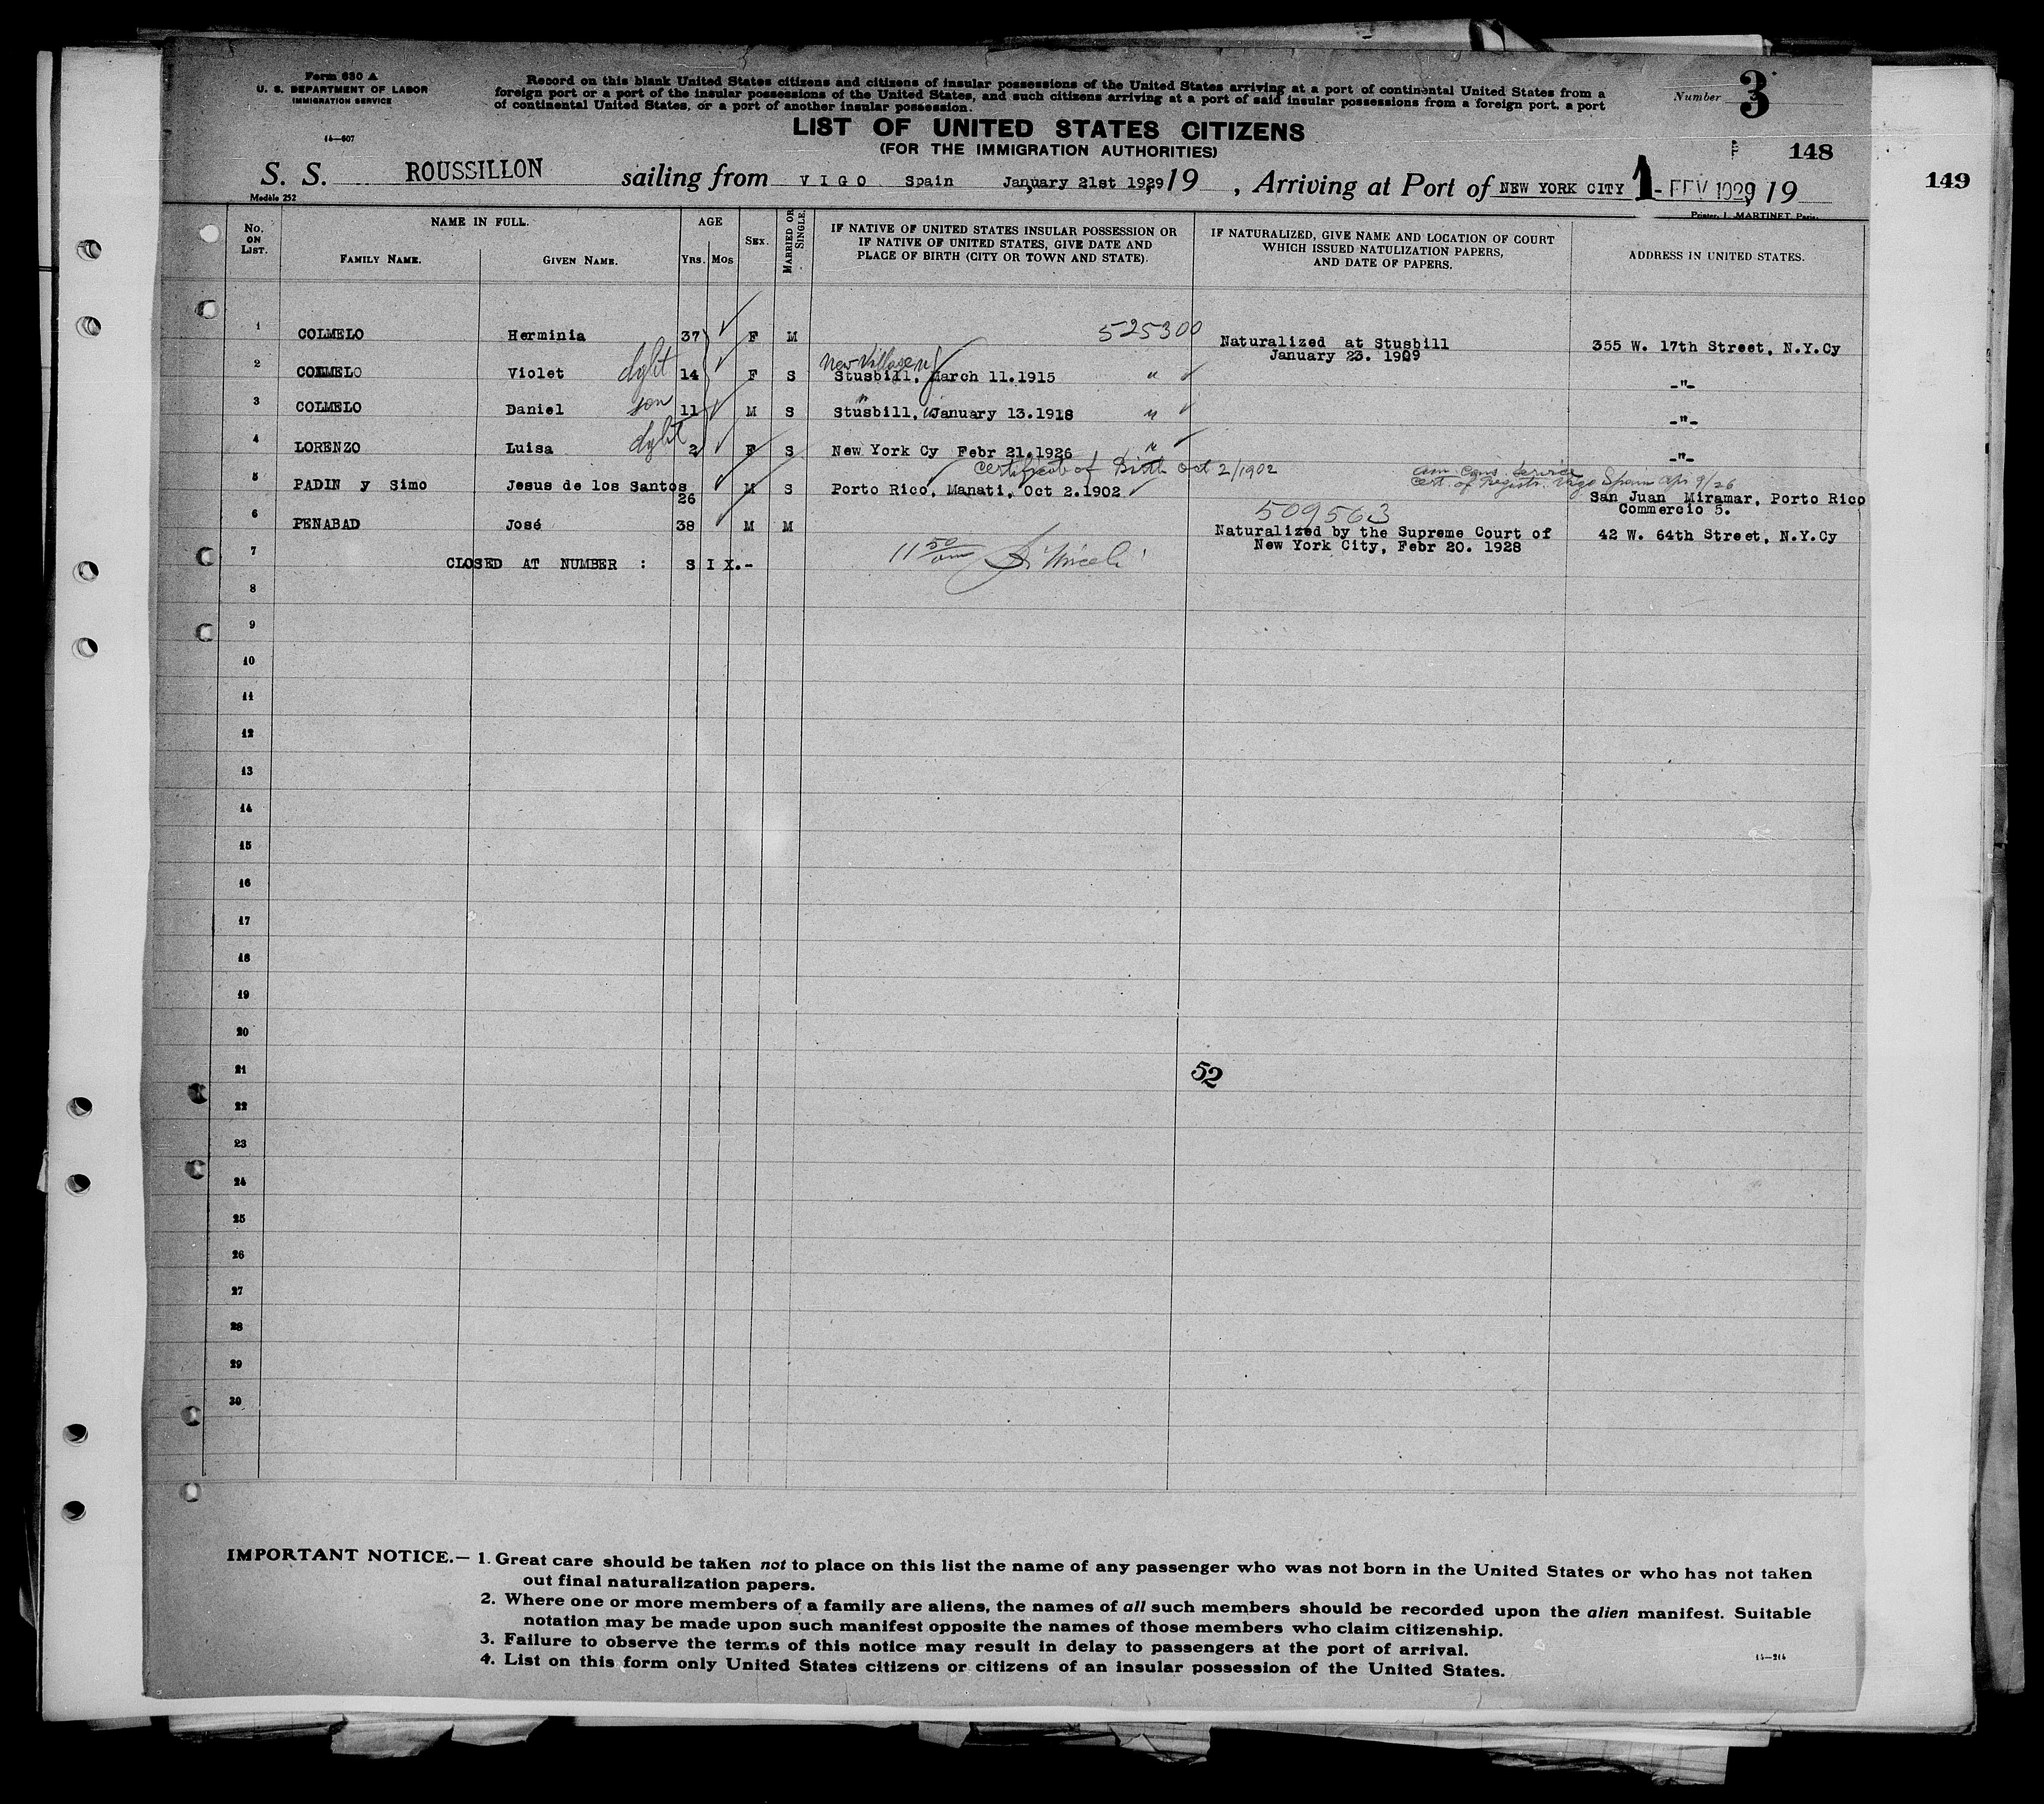 Form 630 A
U. S. DEPARTMENT OF LABOR
IMMIGRATION SERVICE
14—607
Record on this blank United States citizens and citizens of insular possessions of the United States arriving at a port of continental United States from a
foreign port or a port of the insular possessions of the United States, and such citizens arriving at a port of said insular possessions from a foreign port, a port
of continental United States, or a port of another insular possession.
Number 3
LIST OF UNITED STATES CITIZENS
(FOR THE IMMIGRATION AUTHORITIES)
148
149
S. S. ROUSSILLON sailing from VIGO Spain January 21st 1929 19 , Arriving at Port of NEW YORK CITY 1 - FEV 1929 19
Modèle 252
Printer, L. MARTINET, Paris.
No. ON LIST.
NAME IN FULL.
FAMILY NAME.
GIVEN NAME.
AGE
YRS. MOS
SEX.
MARRIED OR SINGLE.
IF NATIVE OF UNITED STATES INSULAR POSSESSION OR
IF NATIVE OF UNITED STATES, GIVE DATE AND
PLACE OF BIRTH (CITY OR TOWN AND STATE).
IF NATURALIZED, GIVE NAME AND LOCATION OF COURT
WHICH ISSUED NATULIZATION PAPERS,
AND DATE OF PAPERS.
ADDRESS IN UNITED STATES.
1 COLMELO Herminia 37 F M 525300 Naturalized at Stusbill 355 W. 17th Street, N.Y.Cy
January 23. 1909
New Village
2 COLMELO Violet dght 14 F S Stusbill, March 11.1915 " -"-
3 COLMELO Daniel son 11 M S Stusbill, January 13.1918 " -"-
4 LORENZO Luisa dght 2 F S New York Cy Febr 21.1926 " -"-
Certificate of Birth Oct 2/1902
Am. Cons. Service
Cert. of Registr. Vigo Spain Apr 9/26
5 PADIN y Simo Jesus de los Santos 26 M S Porto Rico, Manati, Oct 2.1902 San Juan Miramar, Porto Rico
Commercio 5.
509563
6 PENABAD José 38 M M Naturalized by the Supreme Court of 42 W. 64th Street, N.Y.Cy
New York City, Febr 20. 1928
7 CLOSED AT NUMBER : S I X.- 11 50 am
8
9
10
11
12
13
14
15
16
17
18
19
20
21
52
22
23
24
25
26
27
28
29
30
IMPORTANT NOTICE.— 1. Great care should be taken not to place on this list the name of any passenger who was not born in the United States or who has not taken
out final naturalization papers.
2. Where one or more members of a family are aliens, the names of all such members should be recorded upon the alien manifest. Suitable
notation may be made upon such manifest opposite the names of those members who claim citizenship.
3. Failure to observe the terms of this notice may result in delay to passengers at the port of arrival.
4. List on this form only United States citizens or citizens of an insular possession of the United States.
14—214